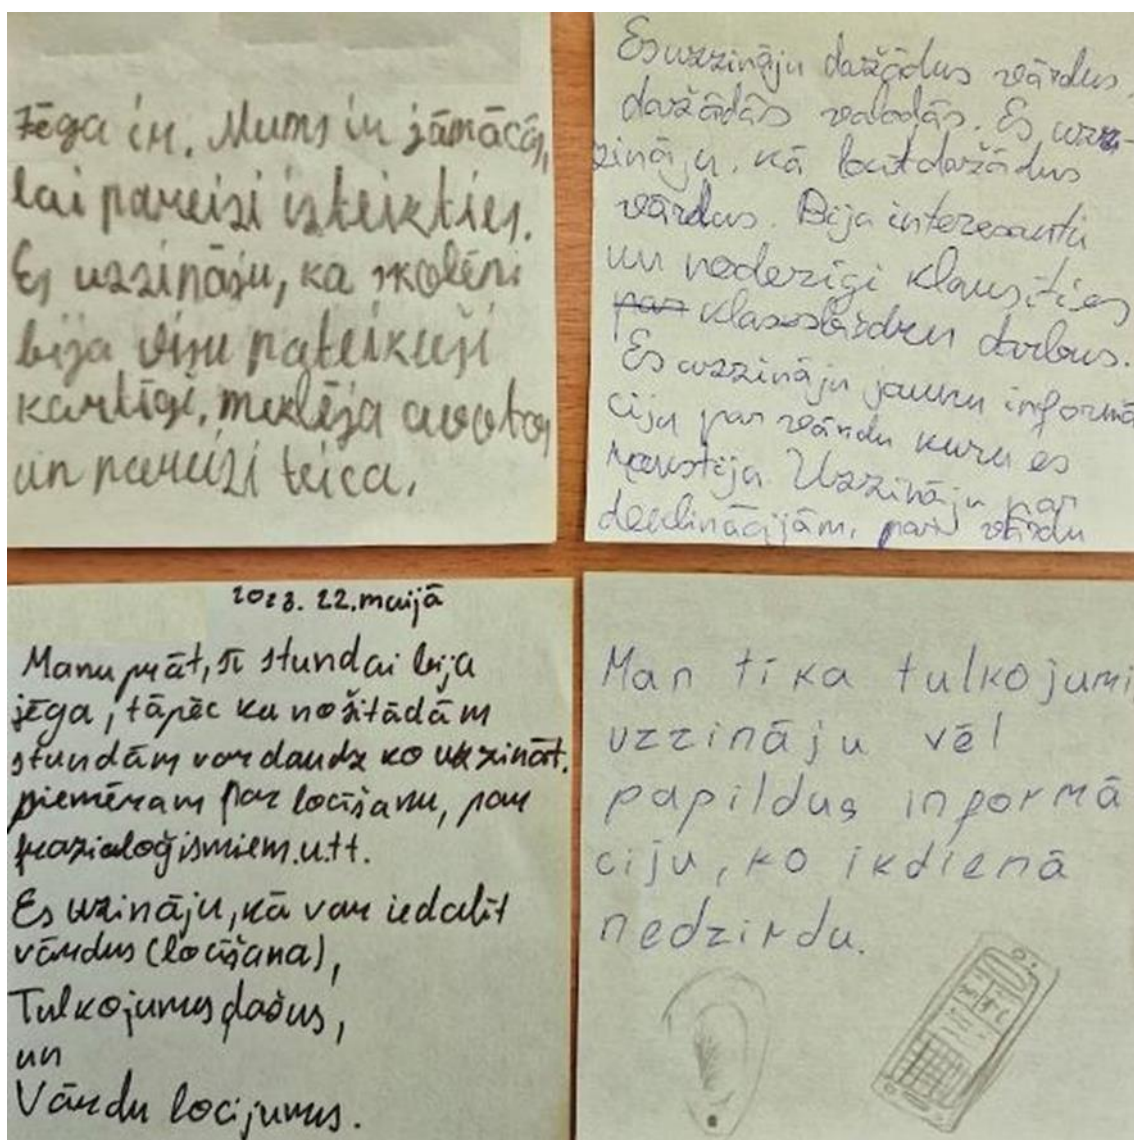 Jēga ir. Mums ir jāmācās,
lai pareizi izteikties.
Es uzzināju, ka skolēni
bija visu pateikuši
kārtīgi, meklēja avotos
un pareizi teica.
Es uzzināju dažādus vārdus,
dažādās valodās. Es uzz-
zināju, kā locīt dažādus
vārdus. Bija interesanti
un noderīgi klausīties
par klassbiedru darbus.
Es uzzināju jaunu informā
ciju par vārdu kuru es
Uzzināju par
deklinācijām, par vārdu
2023. 22. maijā
Manuprāt, šī stundai bija
jēga, tāpēc ka no šitādām
stundām var daudz ko uzzināt.
piemēram par locīšanu, par
frazialoģismiem.u.t.t.
Es uzināju, kā var iedalīt
vārdus (locīšana),
Tulkojumus dažus,
un
Vārdu locījumus.
Man tika tulkojumi,
uzzināju vēl
papildus informā
ciju, ko ikdienā
nedzirdu.